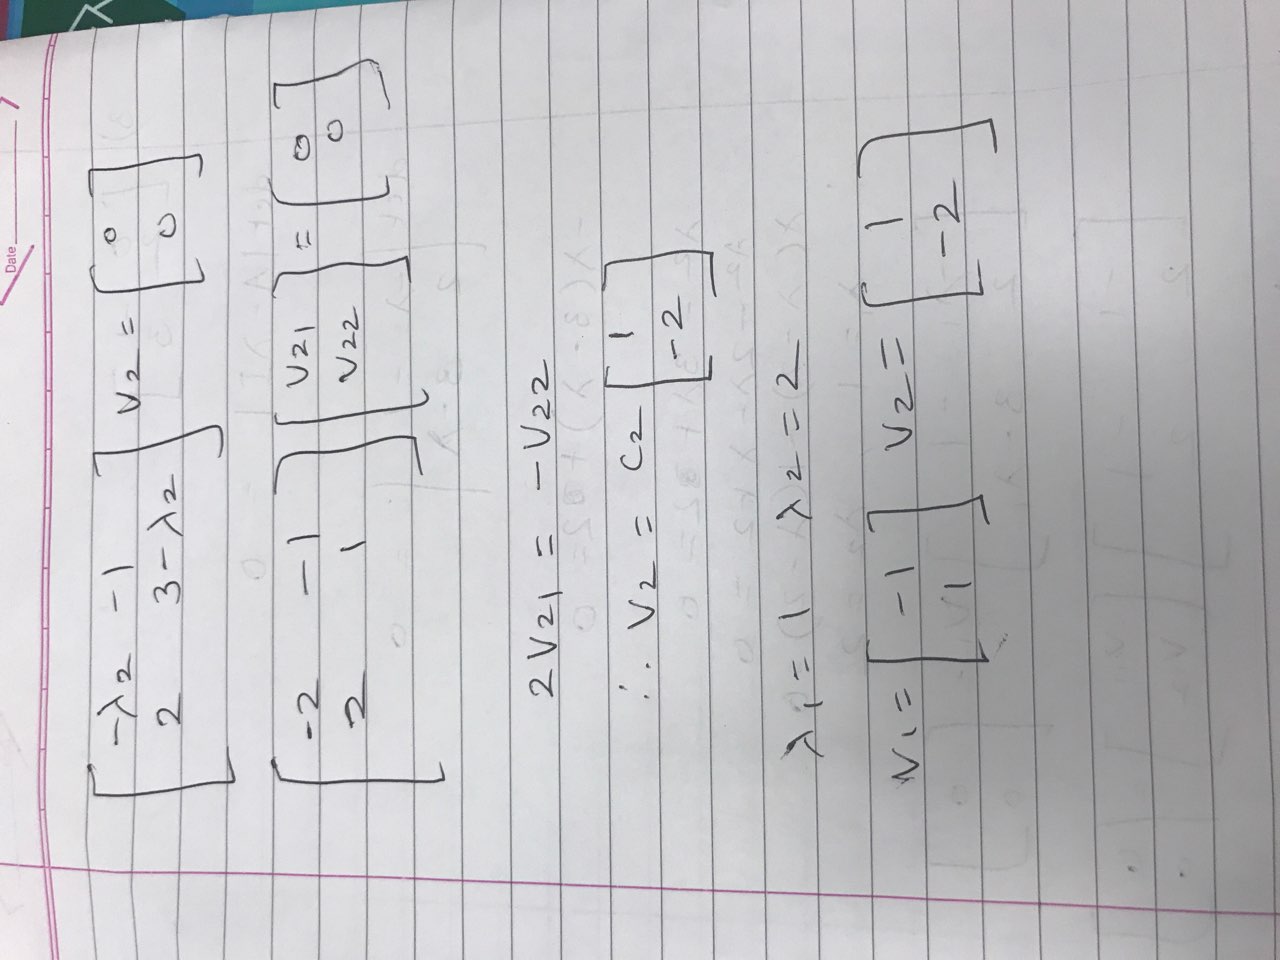 Date
[-λ2 -1
2 3-λ2] V2 = [0
0]
[-2 -1
2 1] [V21
V22] = [0
0]
2V21 = -V22
∴ V2 = C2 [1
-2]
λ1 = 1 λ2 = 2
V1 = [-1
1] V2 = [1
-2]